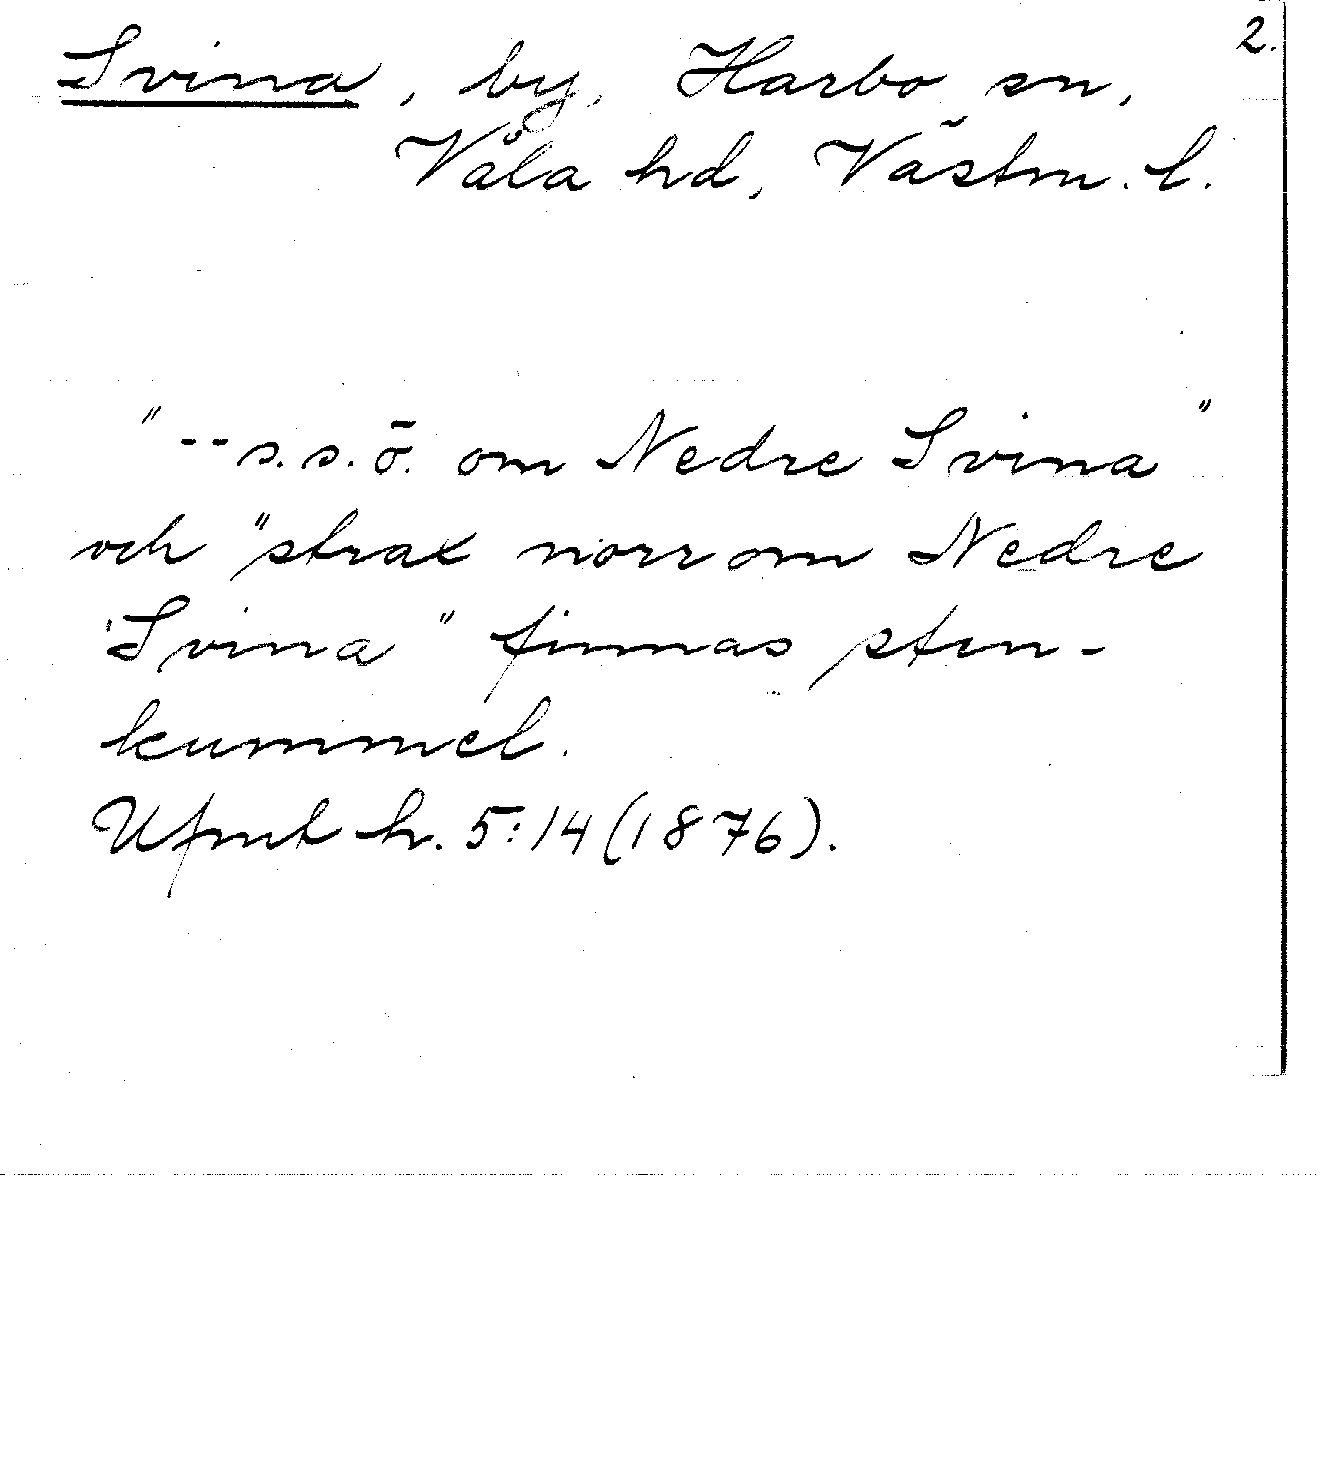 2.
Svina, by, Harbo sn,
Våla hd, Västm. l.
"--s.s.ö. om Nedre Svina"
och "strax norr om Nedre
Svina" finnas sten-
kummel.
Upmt h. 5:14 (1876).